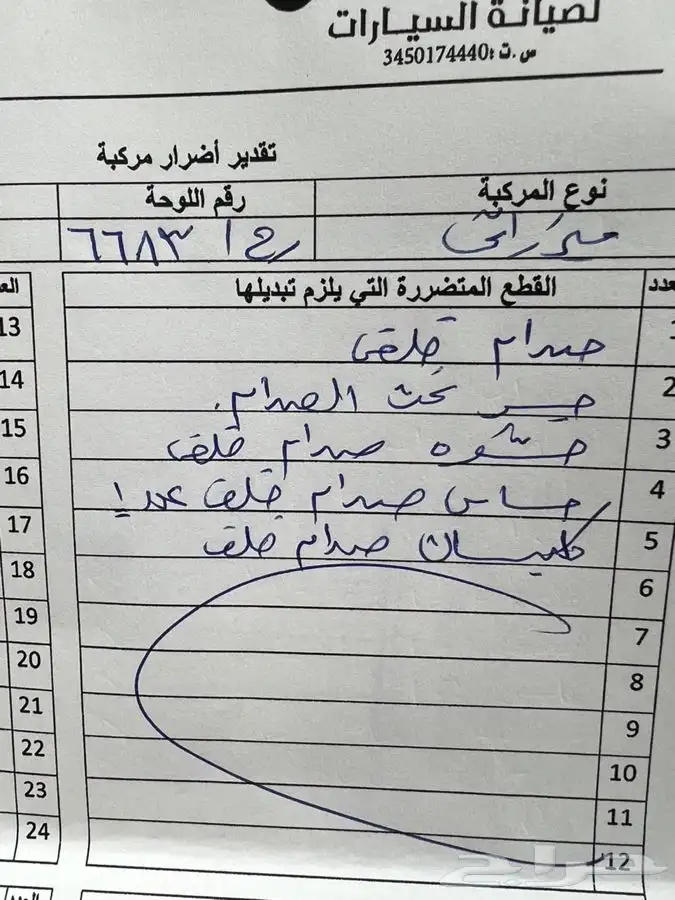 لصيانة السيارات
س.ت:3450174440
تقدير أضرار مركبة
نوع المركبة
رقم اللوحة
ح ا ٦٦٨٣
العدد
القطع المتضررة التي يلزم تبديلها
1 صدام خلفي
2 تحت الصدام.
3 حشوه صدام خلفي
4 حساس صدام خلفي عدد 1
5 كلبسات صدام خلفي
6
7
8
9
10
11
12
13
14
15
16
17
18
19
20
21
22
23
24
حراج